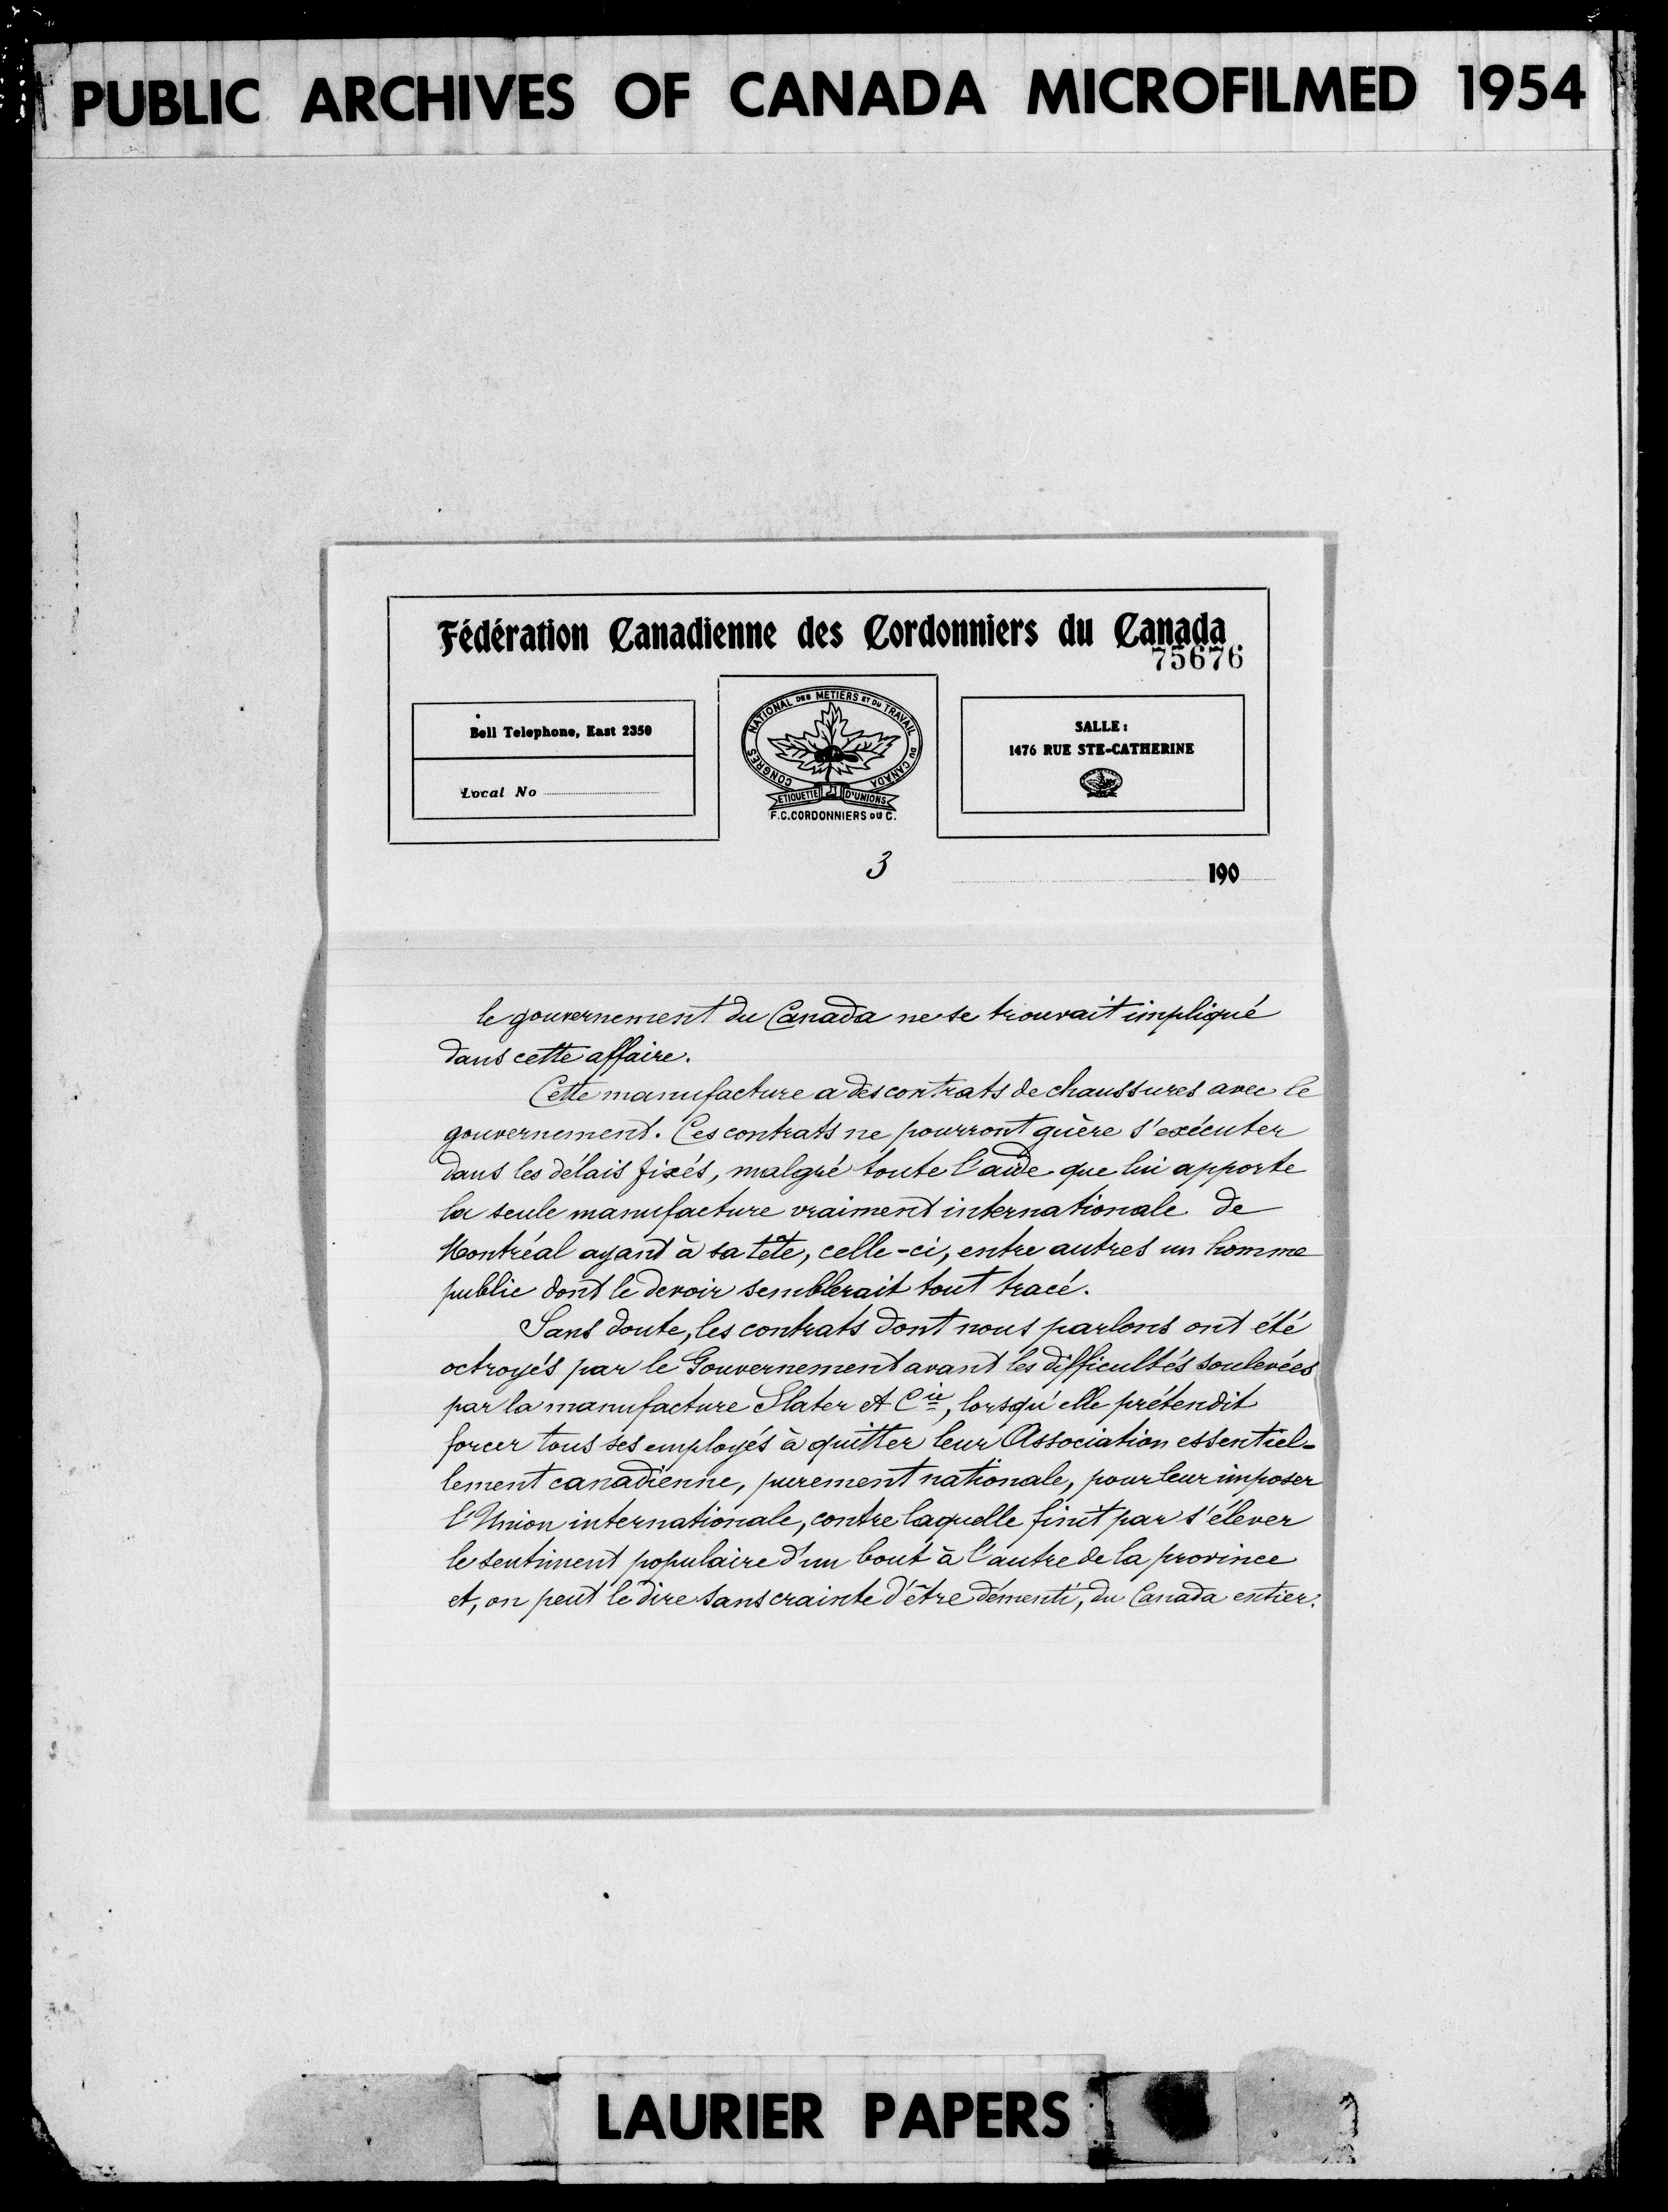 PUBLIC ARCHIVES OF CANADA MICROFILMED 1954
Fédération Canadienne des Cordonniers du Canada
75676
Bell Telephone, East 2350
Local No
CONGRES NATIONAL DES METIERS ET DU TRAVAIL DU CANADA
ETIQUETTE D'UNIONS
F.C.CORDONNIERS DU C.
SALLE:
1476 RUE STE-CATHERINE
3
190
le gouvernement du Canada ne se trouvait impliqué
dans cette affaire.
Cette manufacture a des contrats de chaussures avec le
gouvernement. Ces contrats ne pourront guère s'exécuter
dans les délais fixés, malgré toute l'aide que lui apporte
la seule manufacture vraiment internationale de
Montréal ayant à sa tête, celle-ci, entre autres un homme
public dont le devoir semblerait tout tracé.
Sans doute, les contrats dont nous parlons ont été
octroyés par le Gouvernement avant les difficultés soulevées
par la manufacture Slater et Cie, lorsqu'elle prétendit
forcer tous ses employés à quitter leur Association essentiel-
lement canadienne, purement nationale, pour leur imposer
l'Union internationale, contre laquelle finit par s'élever
le sentiment populaire d'un bout à l'autre de la province
et, on peut le dire sans crainte d'être démenti, du Canada entier.
LAURIER PAPERS